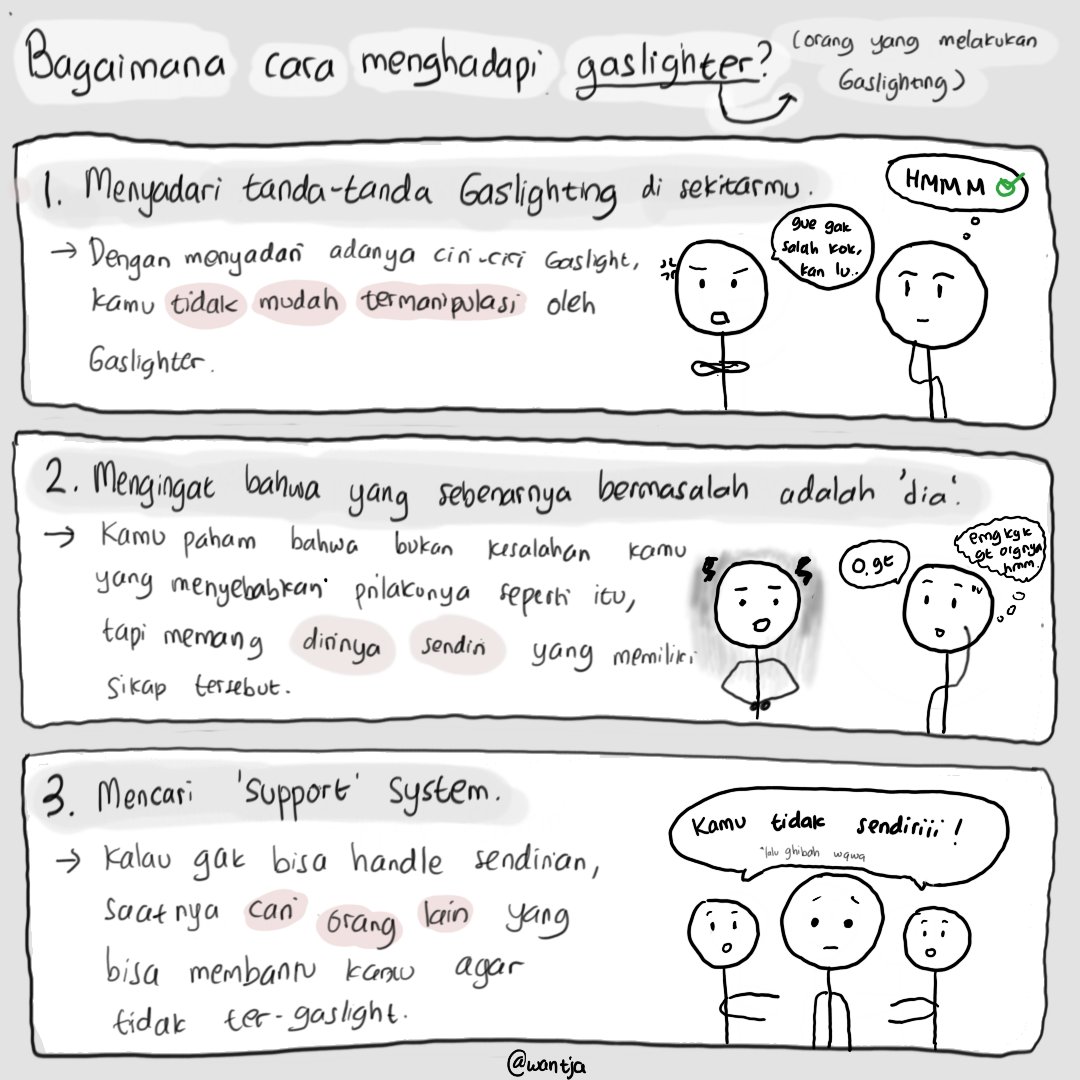 Bagaimana cara menghadapi gaslighter?
(orang yang melakukan
Gaslighting)
1. Menyadari tanda-tanda Gaslighting di sekitarmu.
→ Dengan menyadari adanya ciri-ciri Gaslight,
kamu tidak mudah termanipulasi oleh
Gaslighter.
gue gak
salah kok,
kan lu..
HMMM
2. Mengingat bahwa yang sebenarnya bermasalah adalah 'dia'.
→ Kamu paham bahwa bukan kesalahan kamu
yang menyebabkan prilakunya seperti itu,
tapi memang dirinya sendiri yang memiliki
sikap tersebut.
O, gt
emg kyk
gt orgnya
hmm.
3. Mencari 'support' system.
→ Kalau gak bisa handle sendirian,
saatnya cari orang lain yang
bisa membantu kamu agar
tidak ter-gaslight.
Kamu tidak sendiriii!
*lalu ghibah wqwq
@wantja